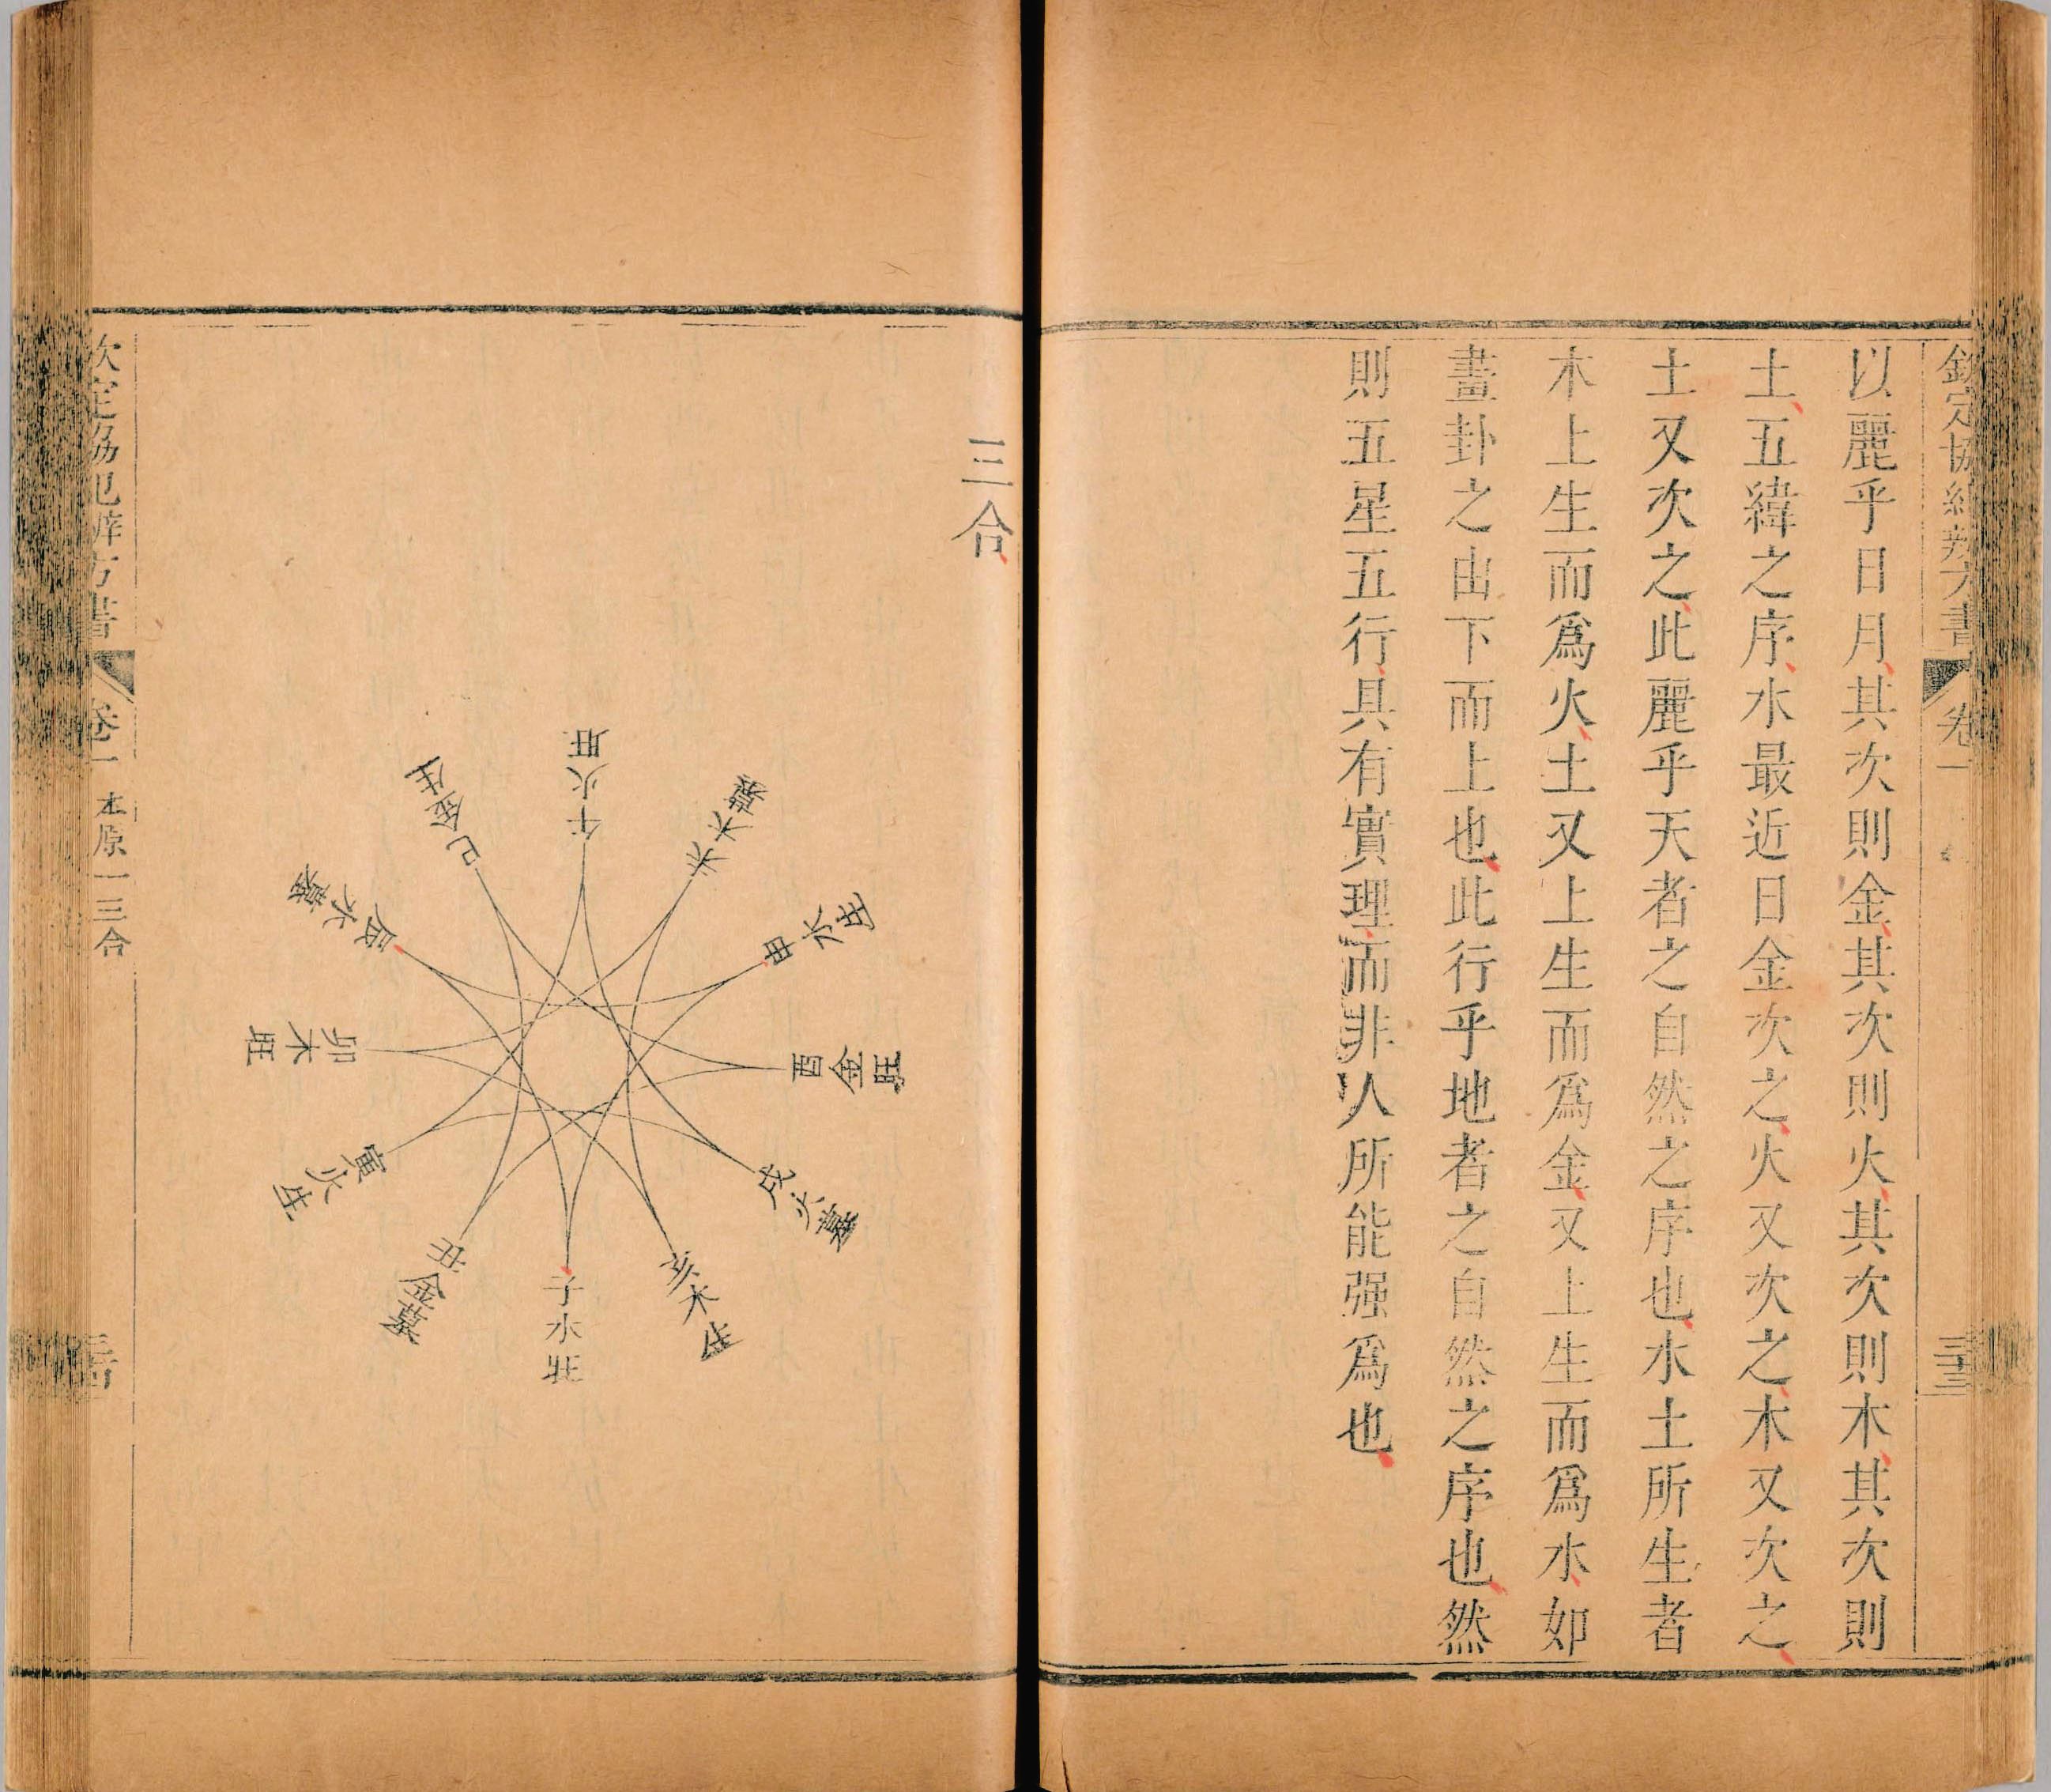 欽定協紀辨方書 卷一 三十三
以麗乎日月其次則金其次則火其次則木其次則
土五緯之序水最近日金次之火又次之木又次之
土又次之此麗乎天者之自然之序也水土所生者
木上生而爲火土又上生而爲金又上生而爲水如
畫卦之由下而上也此行乎地者之自然之序也然
則五星五行具有實理而非人所能强爲也
三合
午火旺
未木墓
申水生
酉金旺
戌火墓
亥木生
子水壯
丑金墓
寅火生
卯木旺
辰水墓
巳金生
欽定協紀辨方書 卷一 本原一 三合